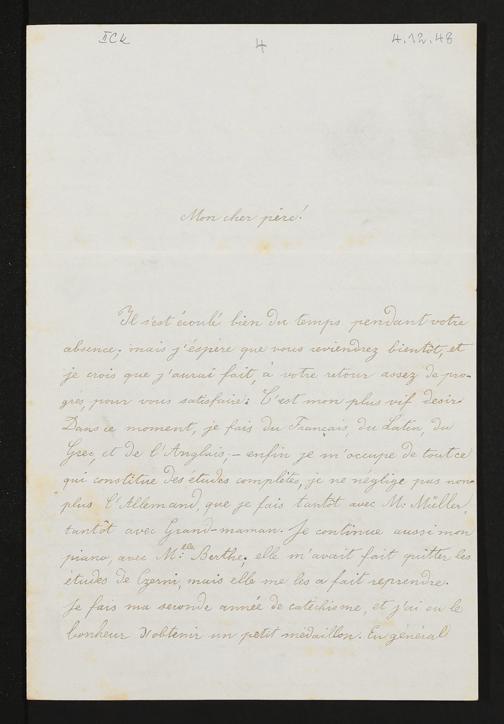 II Ck
4
4.12.48
Mon cher père!
Il s'est écoulé bien du temps pendant votre
absence, mais j'éspère que vous reviendrez bientôt, et
je crois que j'aurai fait, à votre retour assez de pro-
grès, pour vous satisfaire: C'est mon plus vif desir.
Dans ce moment, je fais du Français, du Latin, du
Grec, et de l'Anglais, – enfin je m'occupe de tout ce
qui constitue des études complètes, je ne néglige pas non
plus l'Allemand, que je fais tantôt avec Mr Müller,
tantôt avec Grand-maman. Je continue aussi mon
piano, avec Mlle Berthe; elle m'avait fait quitter les
études de Czerni, mais elle me les a fait reprendre.
Je fais ma seconde année de catéchisme, et j'ai eu le
bonheur d'obtenir un petit médaillon. En général